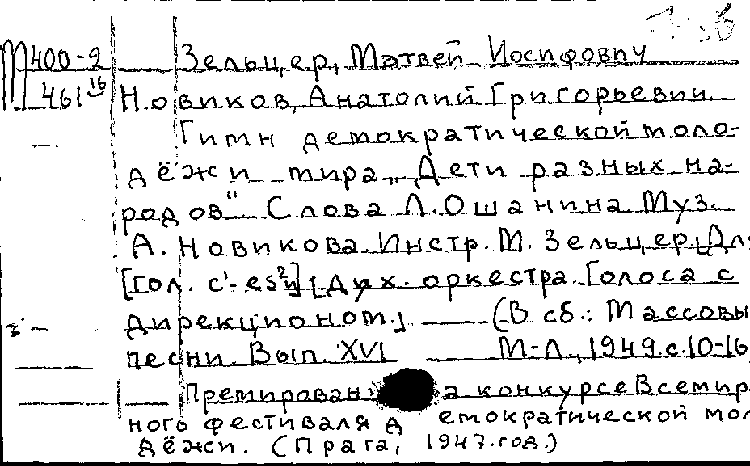 М400-2 Зельцер, Матвей Иосифович
461 16 Новиков, Анатолий Григорьевич.
Гимн демократической моло-
дёжи мира „Дети разных на-
родов" Слова Л. Ошанина Муз.
А. Новикова. Инстр. М. Зельцер. [Для
[гол. с'-es²] [Дух. оркестра. Голоса с
дирекционом.] — (В сб.: Массовы
песни. Вып. XVI — М-Л., 1949. с. 10-16
Премирован а конкурсе Всемир
ного фестиваля д емократической мол
дёжи. (Прага, 1947. год.)